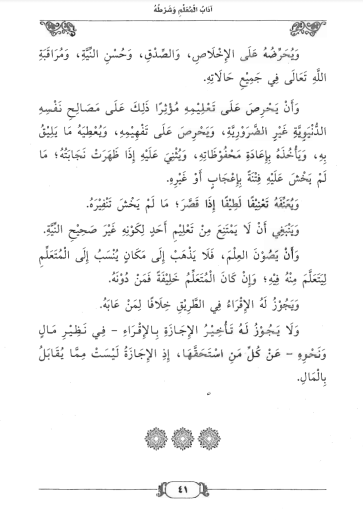 آدَابُ المُعَلِّمِ وَشَرْطُهُ
وَيُحَرِّضُهُ عَلَى الإِخْلَاصِ، وَالصِّدْقِ، وَحُسْنِ النِّيَّةِ، وَمُرَاقَبَةِ
اللَّهِ تَعَالَى فِي جَمِيعِ حَالَاتِهِ.
وَأَنْ يَحْرِصَ عَلَى تَعْلِيمِهِ مُؤْثِرًا ذَلِكَ عَلَى مَصَالِحِ نَفْسِهِ
الدُّنْيَوِيَّةِ غَيْرِ الضَّرُورِيَّةِ، وَيَحْرِصَ عَلَى تَفْهِيمِهِ، وَيُعْطِيهِ مَا يَلِيقُ
بِهِ، وَيَأْخُذَهُ بِإِعَادَةِ مَحْفُوظَاتِهِ، وَيُثْنِيَ عَلَيْهِ إِذَا ظَهَرَتْ نَجَابَتُهُ؛ مَا
لَمْ يَخْشَ عَلَيْهِ فِتْنَةً بِإِعْجَابٍ أَوْ غَيْرِهِ.
وَيُعَنِّفُهُ تَعْنِيفًا لَطِيفًا إِذَا قَصَّرَ؛ مَا لَمْ يَخْشَ تَنْفِيرَهُ.
وَيَنْبَغِي أَنْ لَا يَمْتَنِعَ مِنْ تَعْلِيمِ أَحَدٍ لِكَوْنِهِ غَيْرَ صَحِيحِ النِّيَّةِ.
وَأَنْ يَصُونَ العِلْمَ، فَلَا يَذْهَبْ إِلَى مَكَانٍ يُنْسَبُ إِلَى المُتَعَلِّمِ
لِيَتَعَلَّمَ مِنْهُ فِيهِ؛ وَإِنْ كَانَ المُتَعَلِّمُ خَلِيفَةً فَمَنْ دُونَهُ.
وَيَجُوزُ لَهُ الإِقْرَاءُ فِي الطَّرِيقِ خِلَافًا لِمَنْ عَابَهُ.
وَلَا يَجُوزُ لَهُ تَأْخِيرُ الإِجَازَةِ بِالإِقْرَاءِ - فِي نَظِيرِ مَالٍ
وَنَحْوِهِ - عَنْ كُلِّ مَنِ اسْتَحَقَّهَا، إِذِ الإِجَازَةُ لَيْسَتْ مِمَّا يُقَابَلُ
بِالْمَالِ.
٤١